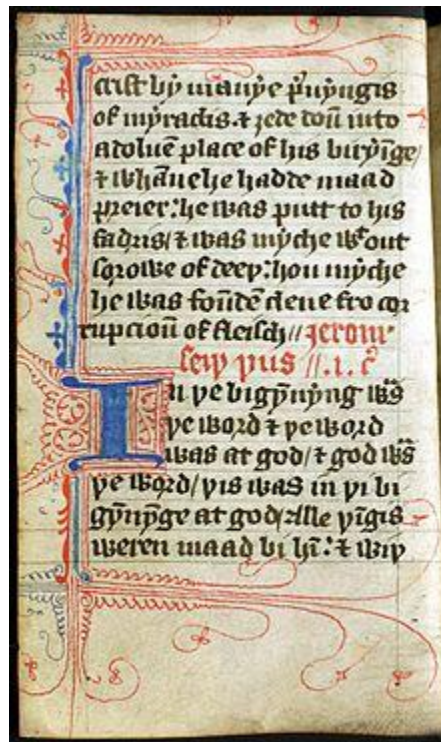 crist bi manye p̾uyngis
of myraclis. ⁊ ȝede doun into
a doluẽ place of his biryĩge/
⁊ whanne he hadde maad
preier: he was putt to his
fadris/ ⁊ was myche wͭout
sorowe of deeþ: hou myche
he was foũdẽ clene fro cor
rupcioũ of fleisch // Jerom
seiþ þus //.i. cͦ
In þe bigyñyng was
þe word ⁊ þe word
was at god/ ⁊ god was
þe word/ þis was in þi bi
gyñynge at god/ Alle þĩgis
weren maad bi hĩ: ⁊ wiþ